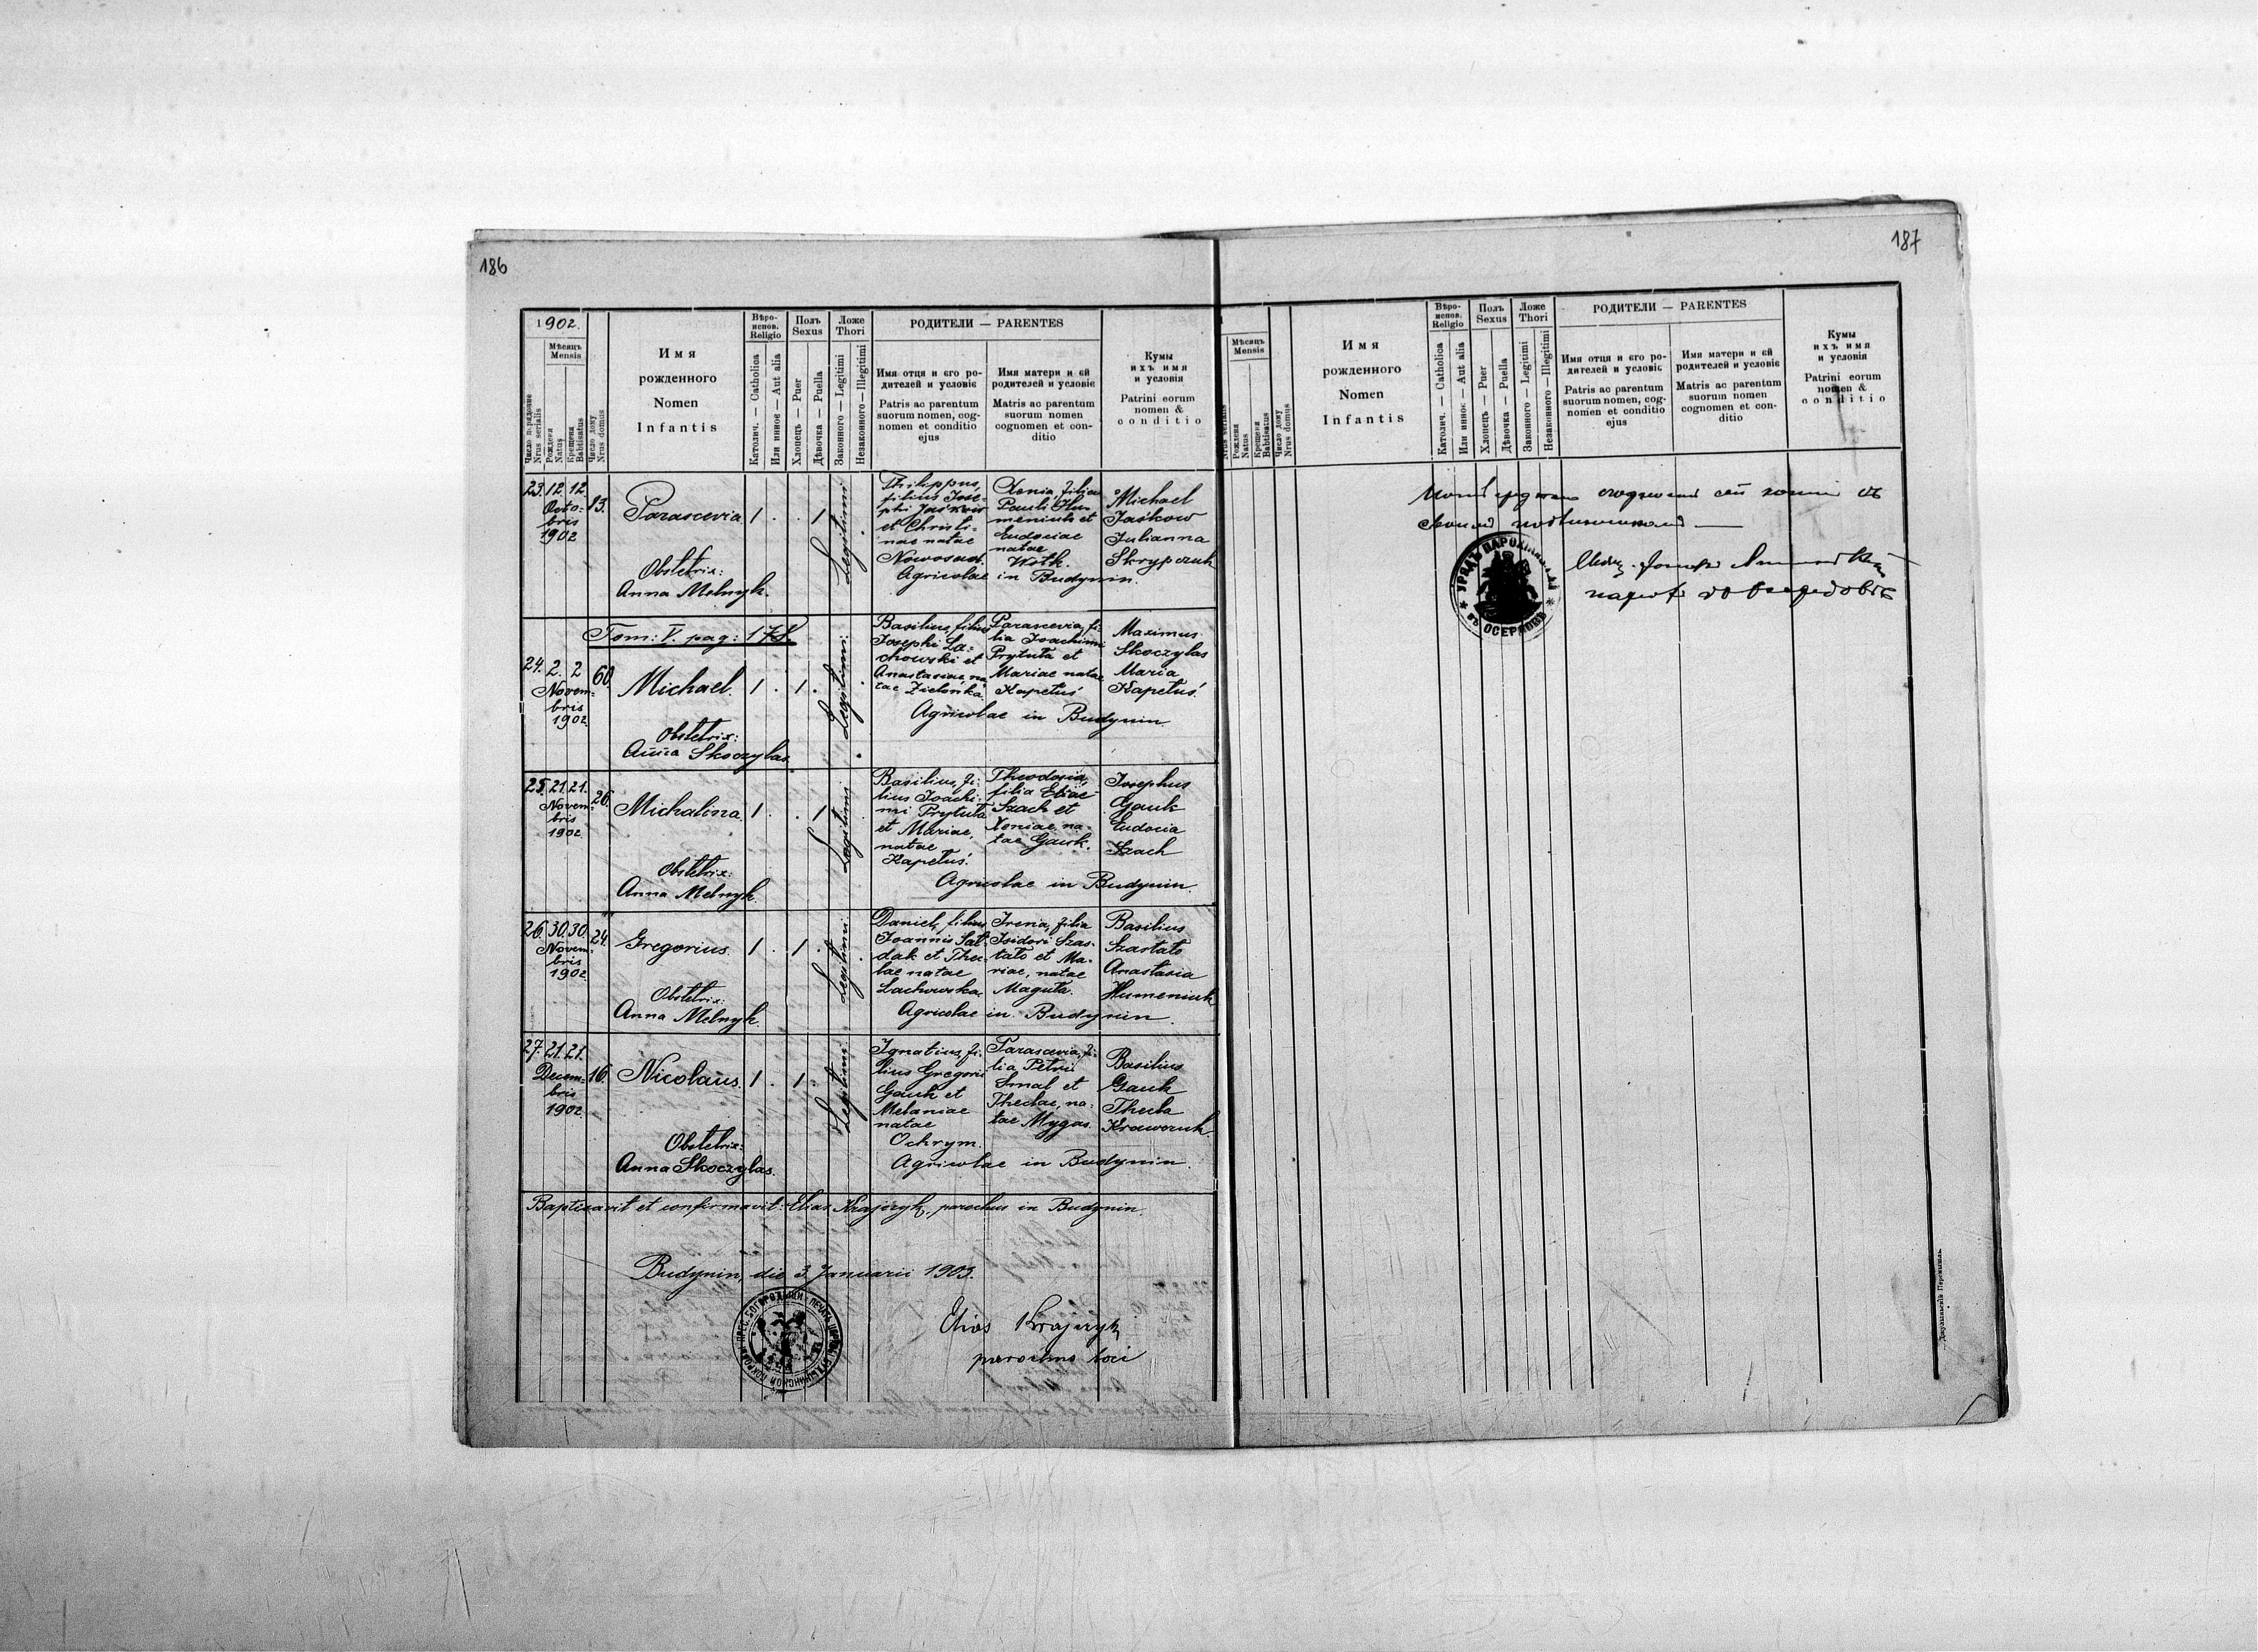 186
1902.
Мѣсяцъ
Mensis
Число порядковое
Nrus serialis
Рождена
Natus
Крещена
Babtisatus
Число дому
Nrus domus
Имя
рожденного
Nomen
Infantis
Вѣро-
испов.
Religio
Католич. — Catholica
Или инное — Aut alia
Полъ
Sexus
Хлопецъ — Puer
Дѣвочка — Puella
Ложе
Thori
Законного — Legitimi
Незаконного — Illegitimi
РОДИТЕЛИ — PARENTES
Имя отця и его ро-
дителей и условіє
Patris ac parentum
suorum nomen, cog-
nomen et conditio
ejus
Имя матери и єй
родителей и условіє
Matris ac parentum
suorum nomen
cognomen et con-
ditio
Кумы
ихъ имя
и условія
Patrini eorum
nomen &
conditio
23. 12. 12.
Octo-
bris
1902
13.
Parascevia
1 . . 1
Legitimi
Obstetrix:
Anna Melnyk.
Philippus,
filius Jose-
phi Jaśkow
et Christi-
nae natae
Nowosad.
Xenia, filia
Pauli Hu-
meniuk et
Eudociae
natae
Wołk.
Agricolae in Budynin.
Michael
Jaśkow
Julianna
Skrypczuk
Tom: V. pag: 178.
24. 2. 2
Novem-
bris
1902.
60.
Michael.
1 . 1 .
Legitimi
Obstetrix:
Anna Skoczylas.
Basilius, filius
Josephi La-
chowski et
Anastasiae na-
tae Zielońka.
Parascevia, fi-
lia Joachimi
Prytuła et
Mariae natae
Kapetuś
Agricolae in Budynin
Maximus
Skoczylas
Maria
Kapetuś
25. 21. 21.
Novem-
bris
1902.
26.
Michalina.
1 . . 1
Legitimi
Obstetrix:
Anna Melnyk.
Basilius, fi-
lius Joachi-
mi Prytuła
et Mariae,
natae
Kapetuś.
Theodosia,
filia Eliae
Szach et
Xeniae, na-
tae Gauk.
Agricolae in Budynin.
Josephus
Gauk
Eudocia
Szach
26. 30. 30.
Novem-
bris
1902
24.
Gregorius.
1 . 1
Legitimi
Obstetrix:
Anna Melnyk.
Daniel, filius
Joannis Sał-
dak et Thec-
lae natae
Lachowska.
Irena, filia
Isidori Szas-
tało et Ma-
riae, natae
Maguta.
Agricolae in Budynin.
Basilius
Szastało
Anastasia
Humeniuk
27. 21. 21.
Decem-
bris
1902.
16.
Nicolaus.
1 . 1 .
Legitimi
Obstetrix:
Anna Skoczylas.
Ignatius, fi-
lius Gregorii
Gauk et
Melaniae
natae
Ochrym.
Parascevia, fi-
lia Petri
Smal et
Theclae, na-
tae Mygas.
Agricolae in Budynin.
Basilius
Gauk
Thecla
Krawczuk.
Baptizavit et confirmavit: Elias Krajczyk, parochus in Budynin.
Budynin, die 3. Januarii 1903.
Elias Krajczyk
parochus loci
187
Мѣсяцъ
Mensis
Nrus serialis
Рождена
Natus
Крещена
Babtisatus
Число дому
Nrus domus
Имя
рожденного
Nomen
Infantis
Вѣро-
испов.
Religio
Католич. — Catholica
Или инное — Aut alia
Полъ
Sexus
Хлопецъ — Puer
Дѣвочка — Puella
Ложе
Thori
Законного — Legitimi
Незаконного — Illegitimi
РОДИТЕЛИ — PARENTES
Имя отця и его ро-
дителей и условіє
Patris ac parentum
suorum nomen, cog-
nomen et conditio
ejus
Имя матери и єй
родителей и условіє
Matris ac parentum
suorum nomen
cognomen et con-
ditio
Кумы
ихъ имя
и условія
Patrini eorum
nomen &
conditio
УРЯДЪ ПАРОХІЯЛЬНЫЙ
въ ОСЕРДОВѢ